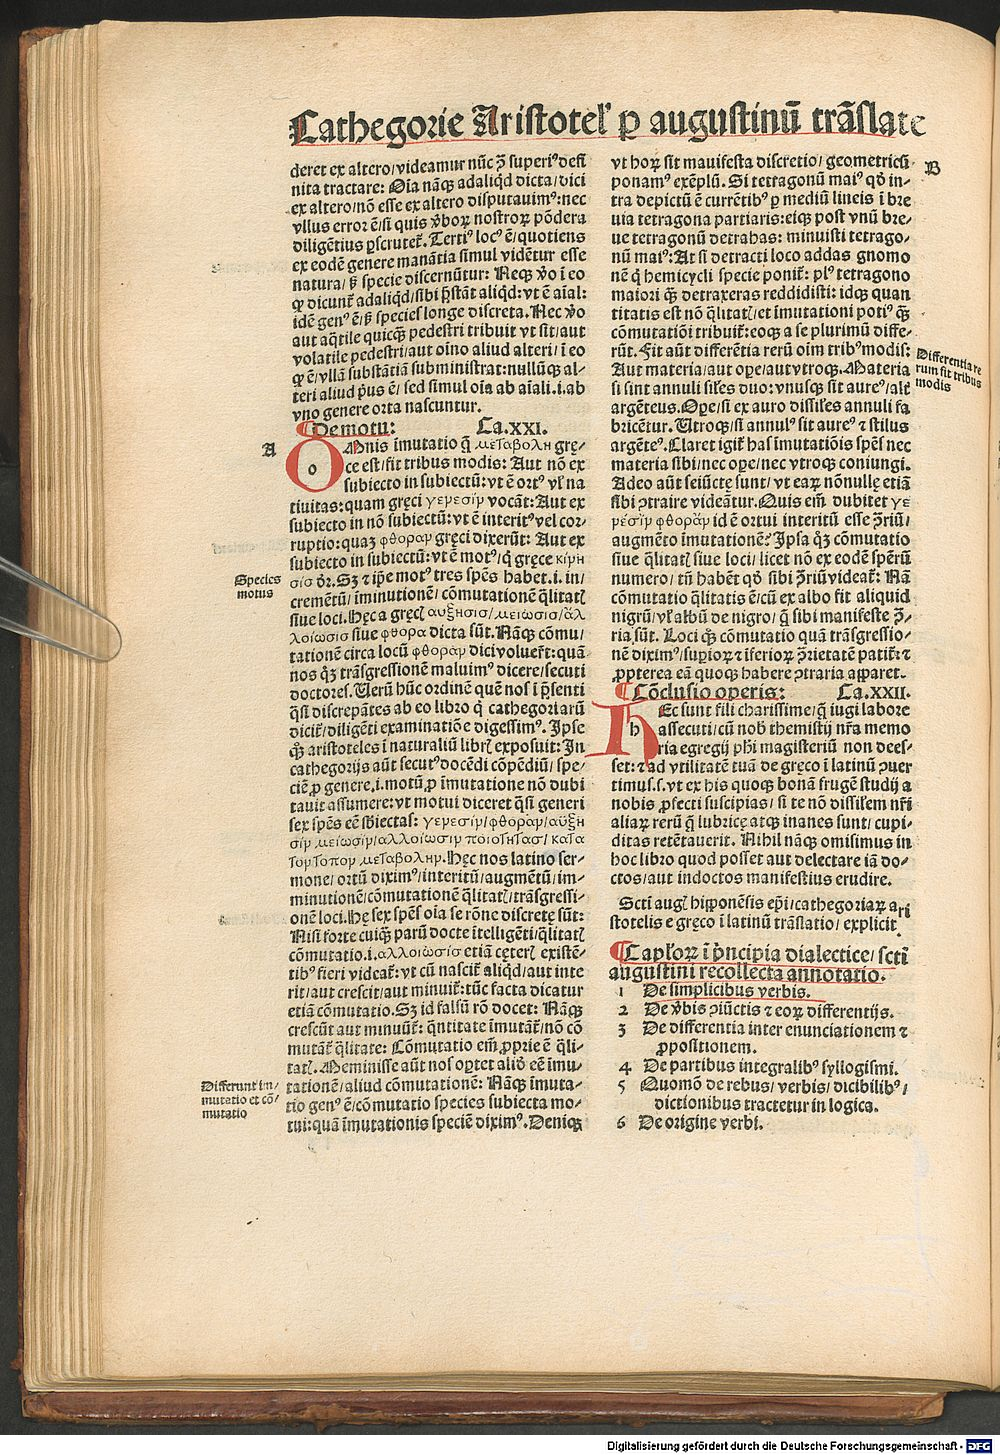 Cathegorie Aristotel᷒ ꝑ augustinū trāslate
deret ex altero/videamur nūc ꝫ̄ superiꝰ defi
nita tractare: Oīa nāqꝫ ad aliqd dicta/dici
ex altero/nō esse ex altero disputauimꝰ: nec
vllus error ē/si quis v̓boꝝ nostroꝝ pōdera
diligētius ꝑscruteť. Tertiꝰ locꝰ ē/quotiens
ex eodē genere manātia simul vidētur esse
natura/sꝫ specie discernūtur: Neqꝫ v̓o ī eo
ꝙ dicunť ad aliqd/sibi p̄stāt aliqd: vt ē aīal:
idē genꝰ ē/sꝫ species longe discreta. Nec v̓o
aut aq̄tile quicqꝫ pedestri tribuit vt sit/aut
volatile pedestri/aut oīno aliud alteri/ī eo
ꝙ ē/vllā substātiā subministrat: nullūqꝫ al-
teri aliud p̓us ē/ sed simul oīa ab aīali .i. ab
vno genere orta nascuntur.
¶De motu: Ca.XXI.
A
OMnis īmutatio q̄ μεταβολη grę-
ce est/fit tribus modis: Aut nō ex
subiecto in subiectū: vt ē ortꝰ vľ na
tiuitas: quam gręci γερεσιρ vocāt: Aut ex
subiecto in nō subiectū: vt ē interitꝰ vel cor-
ruptio: quaꝫ φθοραρ gręci dixerūt: Aut ex
subiecto in subiectū: vt ē motꝰ/q̄ gręce κίρη
σις dr̄. Sꝫ ⁊ ip̄e motꝰ tres spēs habet .i. in/
Species
motus
cremētū/īminutionē/cōmutationē q̄litatꝭ
siue loci. Hęc a gręcꝭ αυξησισ/μειωσισ/ἀλ
λοίωσισ siue φθορα dicta sūt. Nāqꝫ cōmu/
tationē circa locū φθοραρ dici voluerť: quā
nos q̄ꝫ trāsgressionē maluimꝰ dicere/secuti
doctores. Verū hūc ordinē quē nos ī p̄senti
q̄si discrepātes ab eo libro q̄ cathegoriarū
diciť/diligēti examinatiōe digessimꝰ. Ipse
q̄ꝫ aristoteles ī naturaliū librꝭ exposuit: In
cathegorijs aūt secutꝰ docēdi cōpēdiū/spe/
ciē ꝓ genere .i. motū ꝓ īmutatione nō dubi
tauit assumere: vt motui diceret q̄si generi
sex spēs eē sb̄iectas: γερεσιρ/φθοραρ/αυξη
σιρ μειωσιρ/αλλοιωσιρ ποιοτητασ/κατα
τορτοπορ μεταβοληρ. Hęc nos latino ser-
mone/ortū diximꝰ/interitū/augmētū/im-
minutionē/cōmutationē q̄litatꝭ/trāsgressi-
onē loci. Hę sex spēs oīa se rōne discretę sūt:
Nisi forte cuiqꝫ parū docte ītelligēti/q̄litatꝭ
cōmutatio .i. αλλοιωσισ etiā cęterꝭ existē-
tibꝰ fieri videať: vt cū nasciť aliqd/aut inte
rit/aut crescit/aut minuiť: tūc facta dicatur
etiā cōmutatio. Sꝫ id falsū rō docet: Nāqꝫ
crescūt aut minuūť: q̄ntitate īmutāť/nō cō
mutāť q̄litate: Cōmutatio em̄ ꝓprie ē q̄li-
tatꝭ. Meminisse aūt nos oꝑtet aliō eē īmu-
Differunt im-
mutatio et cō-
mutatio
tationē/aliud cōmutationē: Nāqꝫ īmuta-
tio genꝰ ē/cōmutatio species subiecta mo-
tui: quā īmutationis speciē diximꝰ. Deniqꝫ
vt hoꝝ sit manifesta discretio/ geometricū
B
ponamꝰ exēplū. Si tetragonū maiꝰ qd̓ in-
tra depictū ē currētibꝰ ꝑ mediū lineis ī bre
uia tetragona partiaris: eiqꝫ post vnū bre-
ue tetragonū detrahas: minuisti tetrago-
nū maiꝰ: At si detracti loco addas gnomo
nē q̄ hemicycli specie poniť: plꝰ tetragono
maiori q̄ꝫ detraxeras reddidisti: idqꝫ quan
titatis est nō q̄litatꝭ/et īmutationi potiꝰ q̄ꝫ
cōmutatiōi tribuiť: eoqꝫ a se plurimū diffe-
rūt. Fit aūt differētia rerū oīm tribꝰ modis:
Differentia re
rum fit tribus
modis
Aut materia/aut oꝑe/aut vtroqꝫ. Materia
si sint annuli sil̓es duo: vnusqꝫ sit aureꝰ/alť
argēteus. Oꝑe/si ex auro dissil̓es annuli fa
bricētur. Vtroqꝫ/si annulꝰ sit aureꝰ ⁊ stilus
argēteꝰ. Claret igiť has īmutatiōis spēs nec
materia sibi/nec oꝑe/nec vtroqꝫ coniungi.
Adeo aūt seiūctę sunt/ vt eaꝝ nōnullę etiā
sibi ꝯtraire videātur. Quis em̄ dubitet γε
ρέσιρ φθορὰρ id ē ortui interitū esse ꝯ̄riū/
augmēto īmutationē? Ipsa q̄ꝫ cōmutatio
siue q̄litatꝭ siue loci/ licet nō ex eodē spērū
numero/ tn̄ habēt qd̓ sibi ꝯ̄riū videať: Nā
cōmutatio q̄litatis ē/cū ex albo fit aliquid
nigrū/vľ albū de nigro/ q̄ sibi manifeste ꝯ̄-
ria sūt. Loci q̄ꝫ cōmutatio quā trāsgressio-
nē diximꝰ/suꝑioꝝ ⁊ īferioꝝ ꝯ̄rietatē patiť: ⁊
ꝓpterea eā quoqꝫ habere ꝯtraria apparet.
¶Cōclusio operis: Ca.XXII.
HEc sunt fili charissime/q̄ iugi labore
assecuti/cū nob̓ themistij nr̄a memo
ria egregij ph̓i magisteriū non dees-
set: ⁊ ad vtilitatē tuā de gręco ī latinū ꝯuer
timus .s. vt ex his quoqꝫ bonā frugē studij a
nobis ꝓfecti suscipias/ si te nō dissil̓em nr̄i
aliaꝝ rerū q̄ lubricę atqꝫ inanes sunt/ cupi-
ditas retētauerit. Nihil nāqꝫ omisimus in
hoc libro quod posset aut delectare iā do-
ctos/aut indoctos manifestius erudire.
Scti augꝭ hipponēsis ep̄i/cathegoriaꝝ ari
stotelis e gręco ī latinū trāslatio/ explicit.
¶Capl̓oꝝ ī p̄ncipia dialectice/ scti
augustini recollecta annotatio.
1 De simplicibus verbis.
2 De v̓bis ꝯiūctis ⁊ eoꝝ differentijs.
3 De differentia inter enunciationem ⁊
ꝓpositionem.
4 De partibus integralibꝰ syllogismi.
5 Quomō de rebus/ verbis/ dicibilibꝰ/
dictionibus tractetur in logica.
6 De origine verbi.
Digitalisierung gefördert durch die Deutsche Forschungsgemeinschaft - DFG